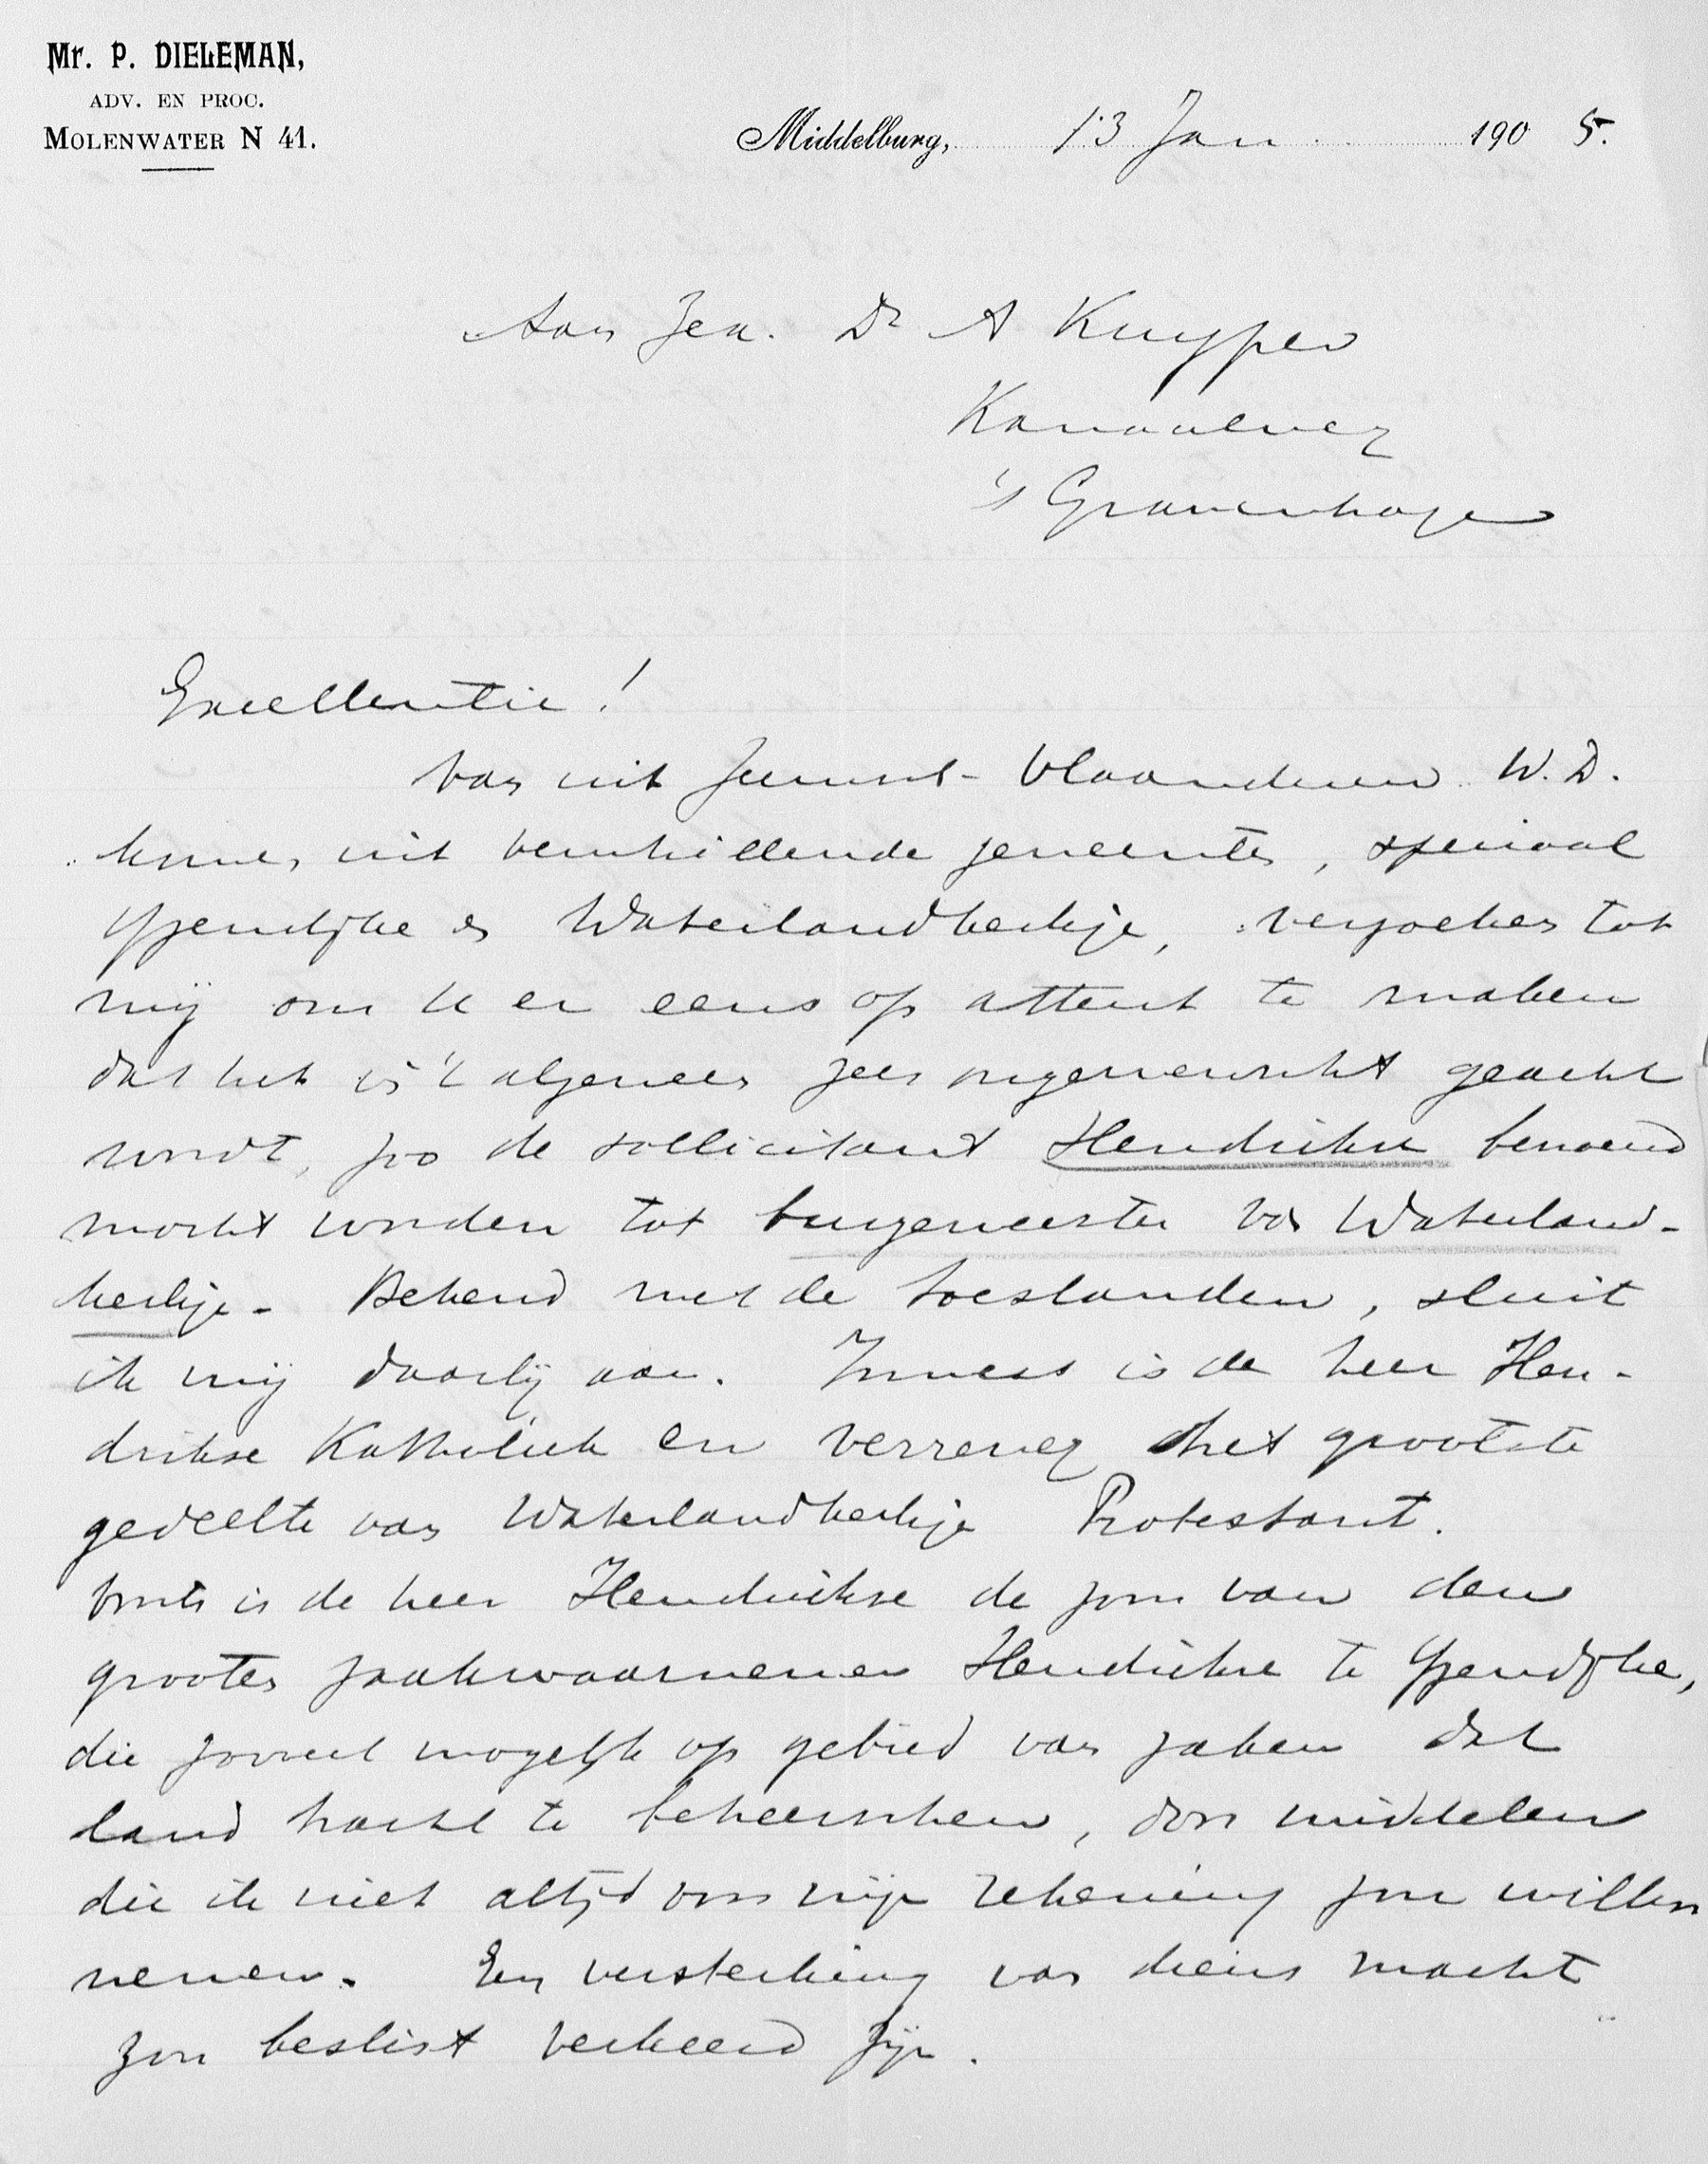 Mr. P. DIELEMAN,
ADV. EN PROC.
MOLENWATER N 41.
Middelburg, 13 Jan 1905.
Aan Zex. Dr A Kuyper
Kanaalweg
's Gravenhage
Excellentie!
Van uit Zeeuwsch-Vlaanderen W.D.
komen uit verschillende gemeenten, speciaal
Yzendijke en Waterlandkerkje, verzoeken tot
mij om U er eens op attent te maken
dat het in 't algemeen zeer ongewenscht geacht
wordt, zoo de sollicitant Hendrikse benoemd
mocht worden tot burgemeester van Waterland-
kerkje. Bekend met de toestanden, sluit
ik mij daarbij aan. Immers is de heer Hen-
drikse Katholiek en verreweg het grootste
gedeelte van Waterlandkerkje Protestant.
Voorts is de heer Hendrikse de zoon van den
grooten zaakwaarnemer Hendrikse te Yzendijke,
die zooveel mogelijk op gebied van zaken dat
land tracht te beheerschen, door middelen
die ik niet altijd voor mijn rekening zou willen
nemen. Een versterking van diens macht
zou beslist verkeerd zijn.